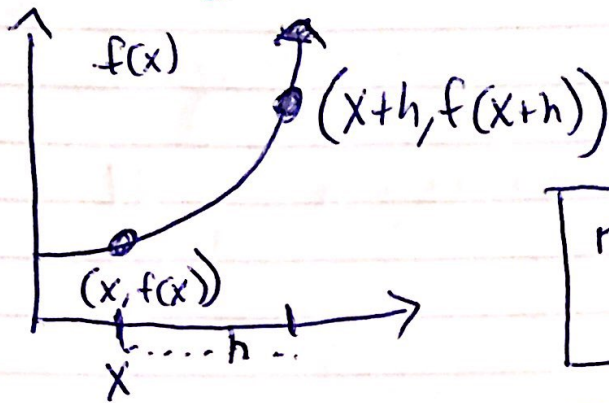 f(x)
(x+h, f(x+h))
(x, f(x))
h
x